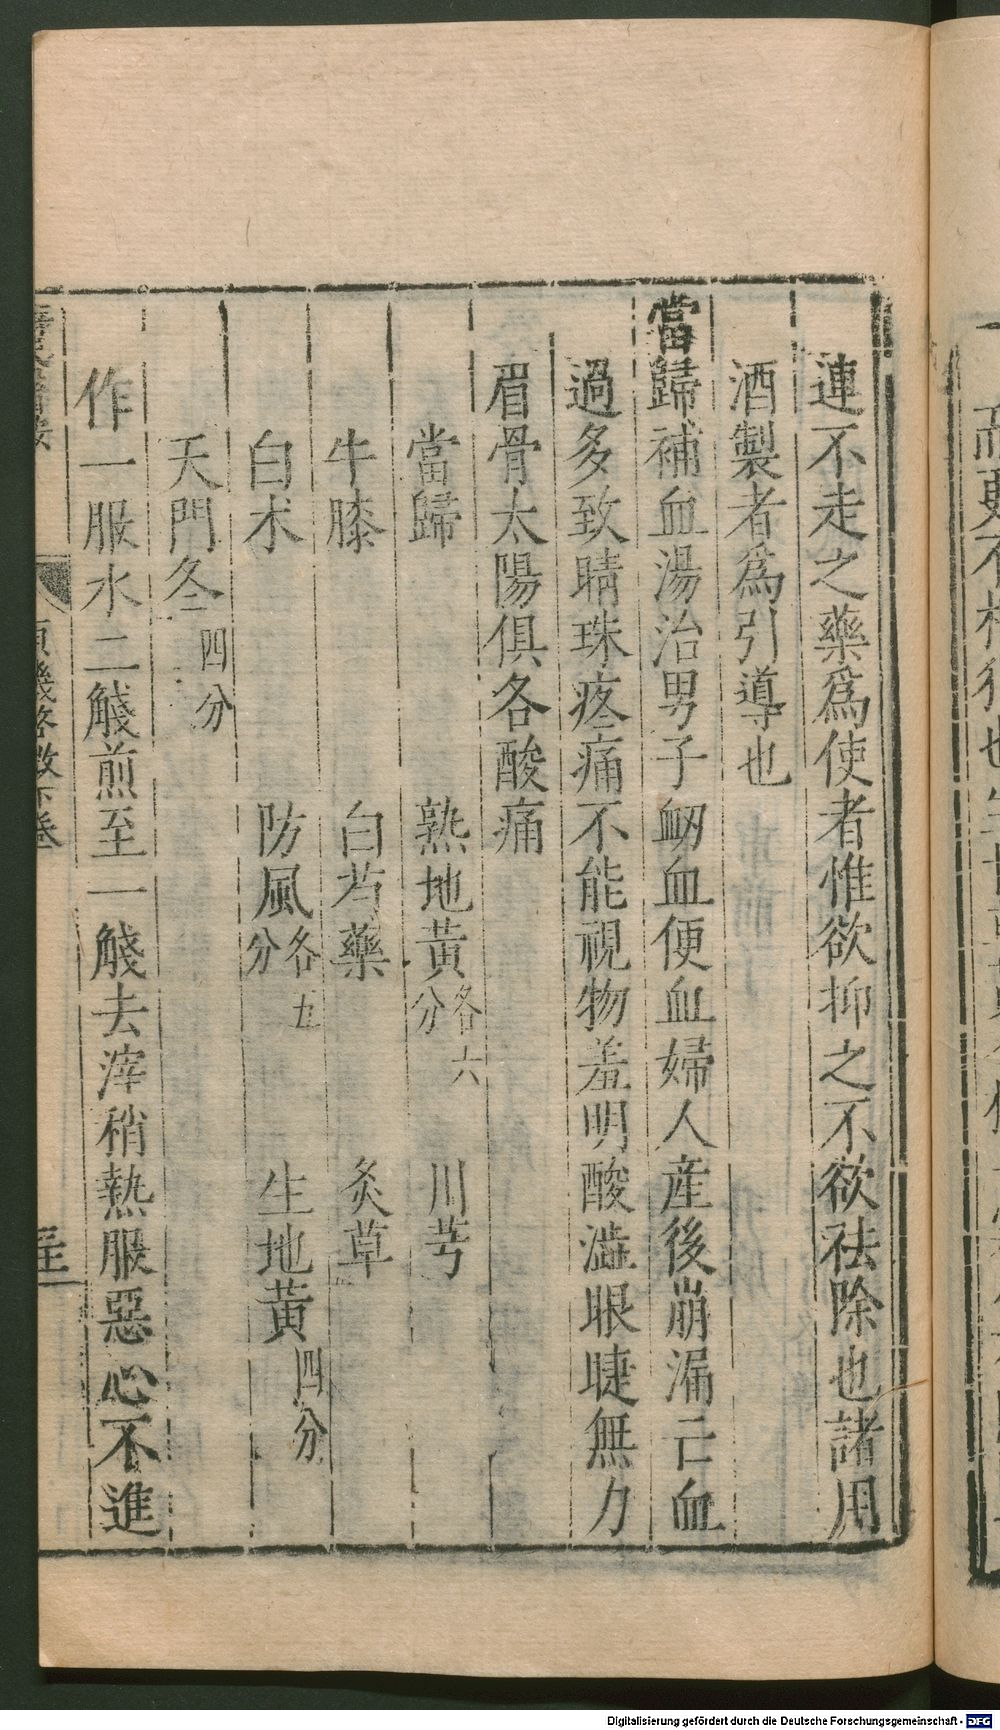 連不走之藥爲使者惟欲抑之不欲祛除也諸用
酒製者爲引導也
當歸補血湯治男子衂血便血婦人産後崩漏亡血
過多致睛珠疼痛不能視物羞明酸澁眼睫無力
眉骨太陽俱各酸痛
當歸 熟地黃各六分 川芎
牛膝 白芍藥 炙草
白术 防風各五分 生地黃四分
天門冬四分
作一服水二觮煎至一觮去滓稍熱服惡心不進
原機啓微下卷
Digitalisierung gefördert durch die Deutsche Forschungsgemeinschaft - DFG